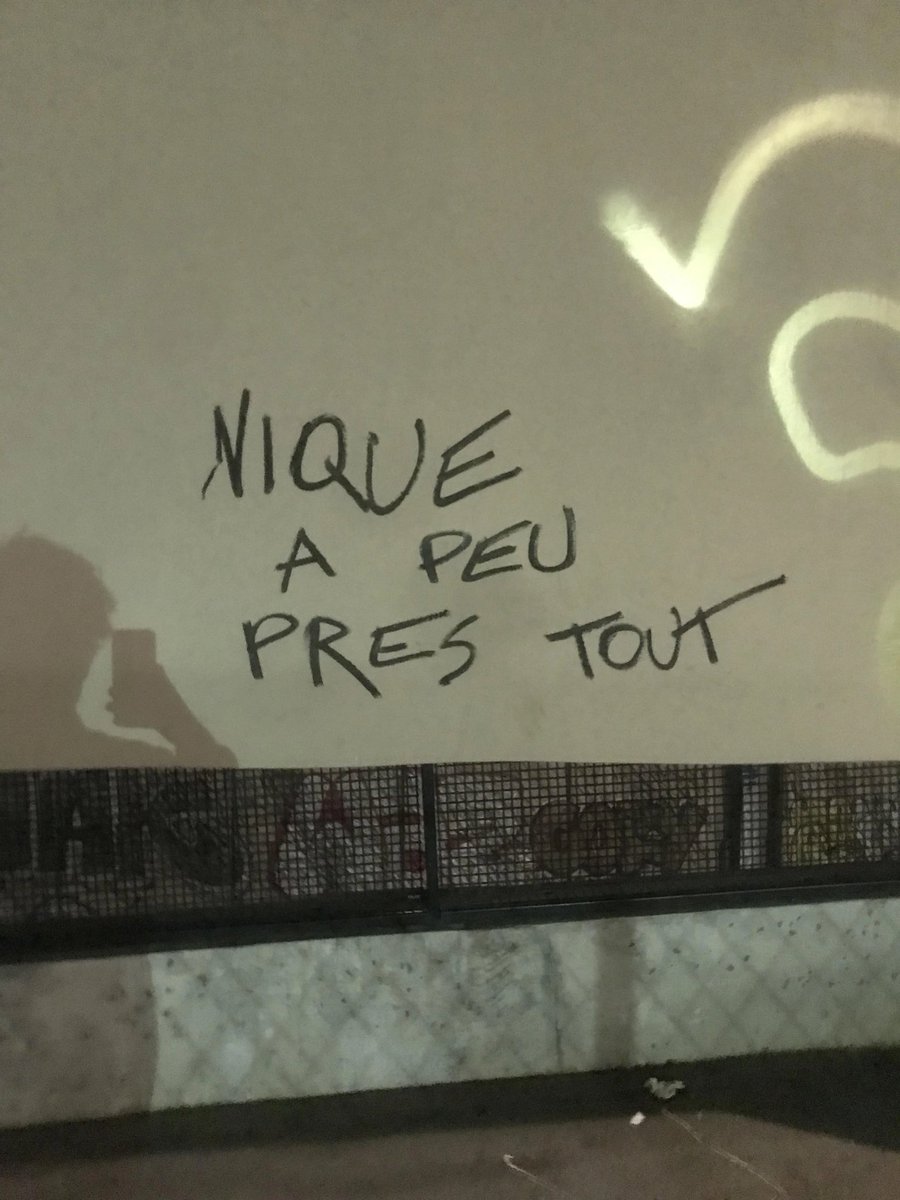 NIQUE
A PEU
PRES TOUT